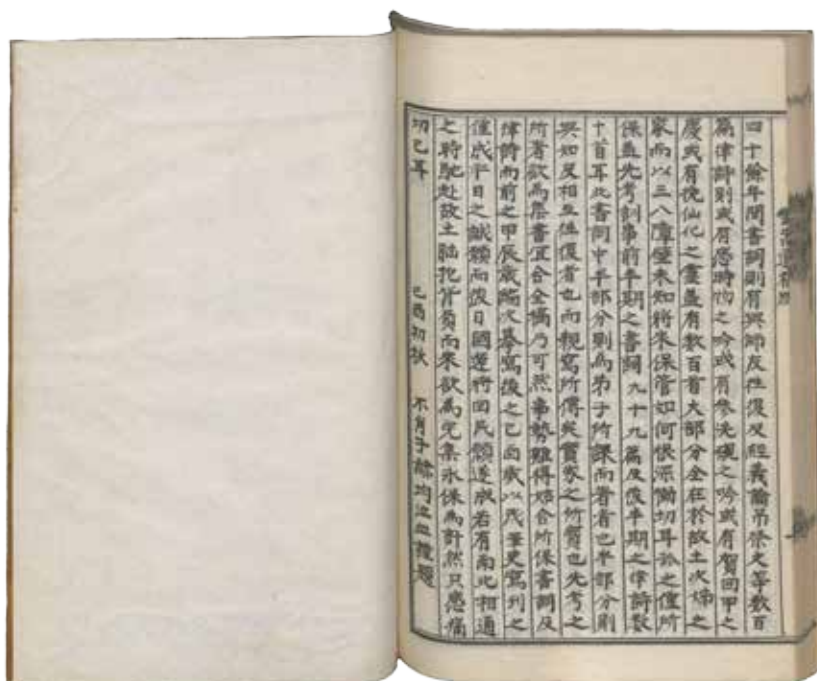 四十餘年間書詞則有與師友往復及經義論吊祭文等數百
篇律詩則或有感時物之吟或有參先硯之吟或有賀回甲之
慶或有挽仙化之靈盖有數百首大部分全在於故土次婦之
家而以三八障壁未知將來保管如何恨深慟切耳於之僅所
保盖先考訓事前半期之書詞九十九篇及後半期之律詩數
十首耳此書詞中半部分則爲弟子所課而著者也半部分則
與知友相互往復者也而親寫所傳矣實家之所寶也先考之
所著欲爲集書宜合全稿乃可然事勢難得姑合所保書詞及
律詩而前之甲辰歲編次摹寫後之己酉歲以茂筆更寫刊之
僅成平日之誠願而後日國運將回民願遂成若有南北相通
之時馳赴故土 抱 負而來欲爲完集永保爲計然只感痛
切已耳
己酉初秋 不肖子 均泣血謹題